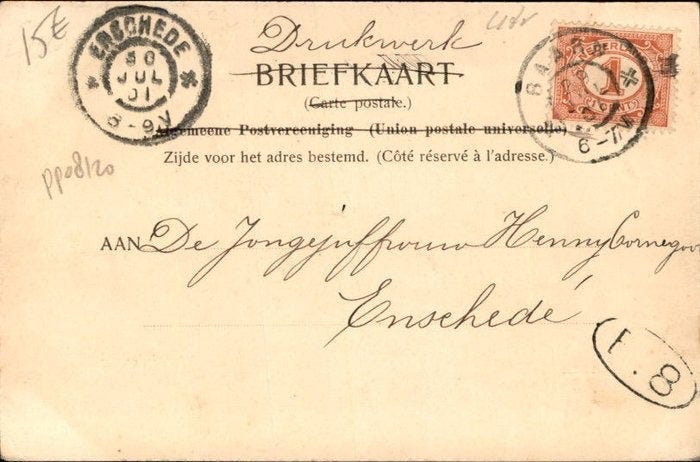 15€
ENSCHEDE
30
JUL
01
8-9V
Drukwerk
BRIEFKAART
(Carte postale.)
Algemeene Postvereeniging (Union postale universelle)
Zijde voor het adres bestemd. (Côté réservé à l'adresse.)
BAARN
1
CENT
pp08120
AAN De Jongejuffrouw Henny Cornegoor
Enschedé
F.8